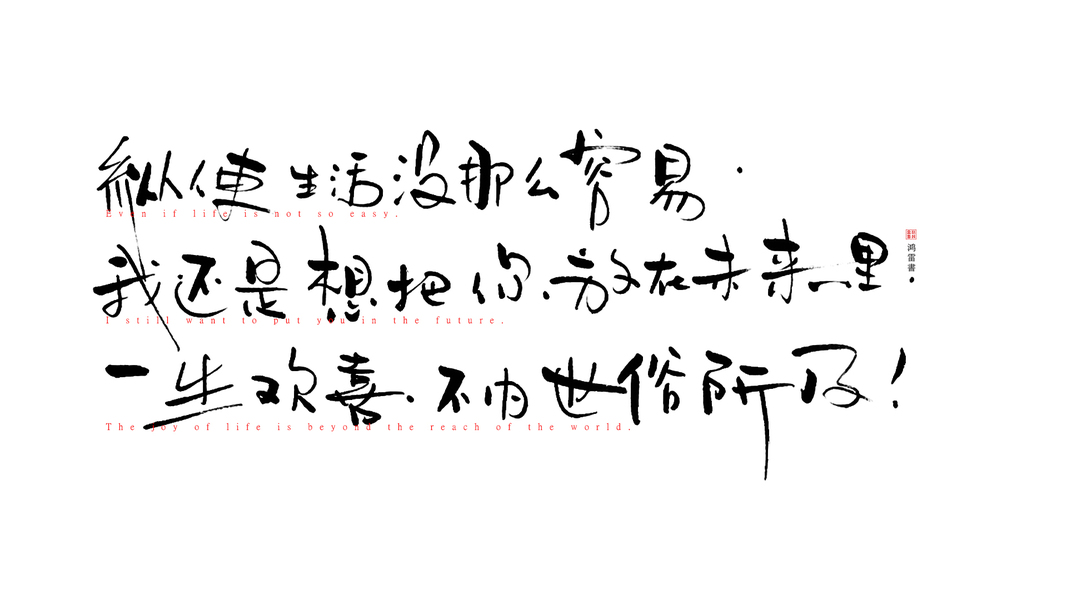 纵使生活没那么容易.
Even if life is not so easy.
我还是想把你放在未来里.
I still want to put you in the future.
一生欢喜.不为世俗所及!
The joy of life is beyond the reach of the world.
鸿雷書